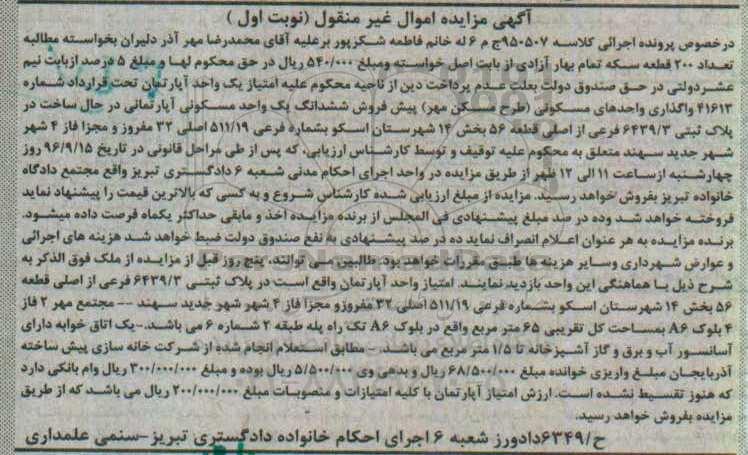 آگهی مزایده اموال غیر منقول (نوبت اول)
درخصوص پرونده اجرائی کلاسه ۹۵۰۵۰۷ج م ۶ له خانم فاطمه شکرپور برعلیه آقای محمدرضا مهر آذر دلیران بخواسته مطالبه
تعداد ۲۰۰ قطعه سکه تمام بهار آزادی از بابت اصل خواسته ومبلغ ۵۴۰/۰۰۰ ریال در حق محکوم لها و مبلغ ۵ درصد ازبابت نیم
عشردولتی در حق صندوق دولت بعلت عدم پرداخت دین از ناحیه محکوم علیه امتیاز یک واحد آپارتمان تحت قرارداد شماره
۴۱۶۱۳ واگذاری واحدهای مسکونی (طرح مسکن مهر) پیش فروش ششدانگ یک واحد مسکونی آپارتمانی در حال ساخت در
پلاک ثبتی ۶۴۳۹/۳ فرعی از اصلی قطعه ۵۶ بخش ۱۴ شهرستان اسکو بشماره فرعی ۵۱۱/۱۹ اصلی ۳۲ مفروز و مجزا فاز ۴ شهر
شهر جدید سهند متعلق به محکوم علیه توقیف و توسط کارشناس ارزیابی، که پس از طی مراحل قانونی در تاریخ ۹۶/۹/۱۵ روز
چهارشنبه ازساعت ۱۱ الی ۱۲ ظهر از طریق مزایده در واحد اجرای احکام مدنی شعبه ۶ دادگستری تبریز واقع مجتمع دادگاه
خانواده تبریز بفروش خواهد رسید. مزایده از مبلغ ارزیابی شده کارشناس شروع و به کسی که بالاترین قیمت را پیشنهاد نماید
فروخته خواهد شد وده در صد مبلغ پیشنهادی فی المجلس از برنده مزایده اخذ و مابقی حداکثر یکماه فرصت داده میشود.
برنده مزایده به هر عنوان اعلام انصراف نماید ده در صد پیشنهادی به نفع صندوق دولت ضبط خواهد شد هزینه های اجرائی
و عوارض شهرداری وسایر هزینه ها طبق مقررات خواهد بود. طالبین می توانند، پنج روز قبل از مزایده از ملک فوق الذکر به
شرح ذیل با هماهنگی این واحد بازدید نمایند. امتیاز واحد آپارتمان واقع است در پلاک ثبتی ۶۴۳۹/۳ فرعی از اصلی قطعه
۵۶ بخش ۱۴ شهرستان اسکو بشماره فرعی ۵۱۱/۱۹ اصلی ۳۲ مفروزو مجزا فاز ۴ شهر شهر جدید سهند -- مجتمع مهر ۲ فاز
۴ بلوک A۶ بمساحت کل تقریبی ۶۵ متر مربع واقع در بلوک A۶ تک راه پله طبقه ۲ شماره ۶ می باشد.-یک اتاق خوابه دارای
آسانسور آب و برق و گاز آشپزخانه تا ۱/۵ متر مربع می باشد.- مطابق استعلام انجام شده از شرکت خانه سازی پیش ساخته
آذربایجان مبلغ واریزی خوانده مبلغ ۶۸/۵۰۰/۰۰۰ ریال و بدهی وی ۵/۵۰۰/۰۰۰ ریال بوده و مبلغ ۳۰۰/۰۰۰/۰۰۰ ریال وام بانکی دارد
که هنوز تقسیط نشده است. ارزش امتیاز آپارتمان با کلیه امتیازات و منصوبات مبلغ ۲۰۰/۰۰۰/۰۰۰ ریال می باشد که از طریق
مزایده بفروش خواهد رسید.
ح/۶۳۴۹دادورز شعبه ۶ اجرای احکام خانواده دادگستری تبریز-سنمی علمداری